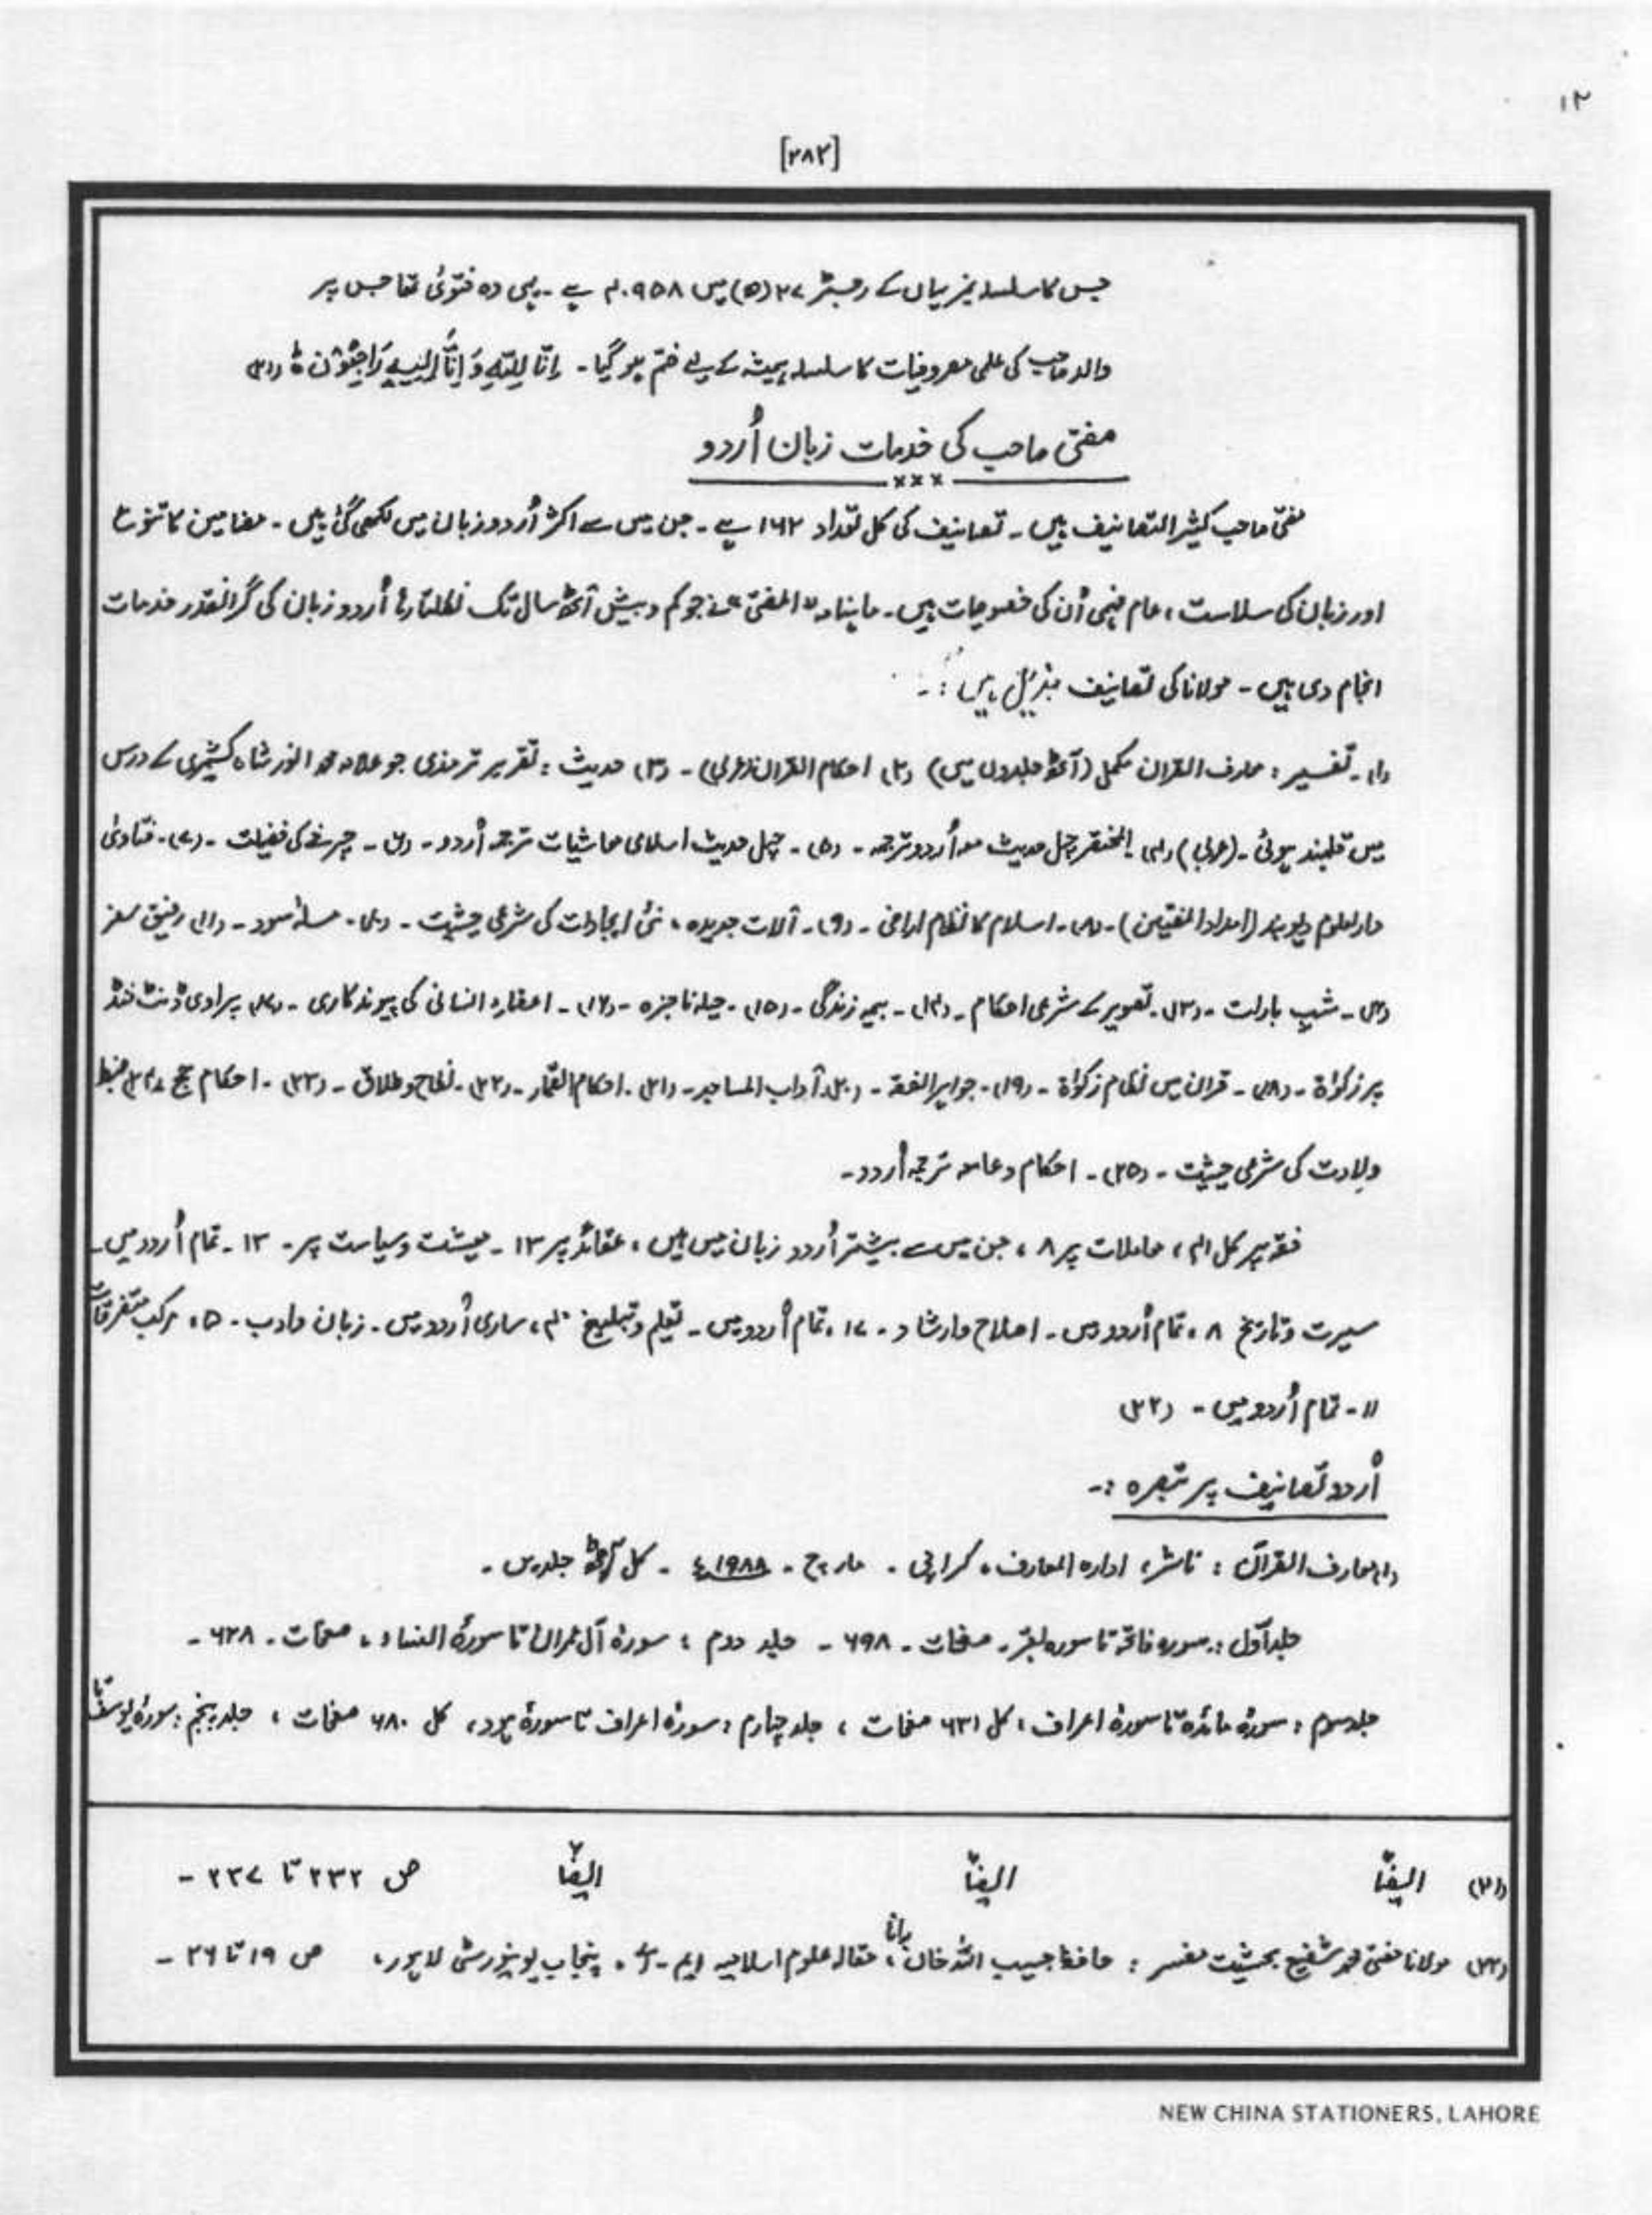 ۱۲
[۲۸۲]
جس کا سلسلہ نمبر یہاں کے رجسٹر ۲۷(۵) میں ۹۵۸ ہے۔ یہی وہ فتویٰ تھا جس پر
والد صاحب کی علمی مصروفیات کا سلسلہ ہمیشہ کے لیے ختم ہو گیا۔ اِنَّا لِلّٰہِ وَ اِنَّا اِلَیہِ رَاجِعُوْن ط (۲۱)
مفتی صاحب کی خدمات زبان اُردو
×××
مفتی صاحب کثیر التصانیف ہیں۔ تصانیف کی کل تعداد ۱۶۲ ہے۔ جن میں سے اکثر اُردو زبان میں لکھی گئی ہیں۔ مضامین کا تنوع
اور زبان کی سلاست، عام فہمی اُن کی خصوصیات ہیں۔ ماہنامہ "المفتی" نے جو کم و بیش آٹھ سال تک نکلتا رہا اُردو زبان کی گرانقدر خدمات
انجام دی ہیں۔ مولانا کی تصانیف ہیں :۔
(۱)۔ تفسیر : معارف القران مکمل (آٹھ جلدوں میں) (۲) احکام القران (عربی)۔ (۳) حدیث : تقریر ترمذی جو علامہ محمد انور شاہ کشمیری کے درس
میں قلمبند ہوئی۔ (عربی) (۴) المختصر چہل حدیث معہ اُردو ترجمہ۔ (۵)۔ چہل حدیث اسلامی معاشیات ترجمہ اُردو۔ (۶)۔ کی فضیلت۔ (۷)۔ فتاویٰ
دارالعلوم دیوبند (امداد المفتیین)۔ (۸)۔ اسلام کا نظام اراضی۔ (۹)۔ آلات جدیدہ، نئی ایجادات کی شرعی حیثیت۔ (۱۰)۔ مسئلہ سود۔ (۱۱) رفیق سفر
(۱۲)۔ شبِ بارات۔ (۱۳)۔ تصویر کے شرعی احکام۔ (۱۴)۔ بیمہ زندگی۔ (۱۵)۔ حیلہ ناجزہ۔ (۱۶)۔ اعضاء انسانی کی پیوند کاری۔ (۱۷) پراویڈنٹ فنڈ
پر زکوٰۃ۔ (۱۸)۔ قران میں نظام زکوٰۃ۔ (۱۹)۔ جواہر الفقہ۔ (۲۰) آداب المساجد۔ (۲۱)۔ احکام القمار۔ (۲۲)۔ نکاح و طلاق۔ (۲۳)۔ احکام حج (۲۴) ضبط
ولادت کی شرعی حیثیت۔ (۲۵)۔ احکام دعا معہ ترجمہ اُردو۔
فقہ پر کل ۴۱، معاملات پر ۸، جن میں سے بیشتر اُردو زبان میں ہیں، عقائد پر ۱۳۔ معیشت و سیاست پر۔ ۱۳۔ تمام اُردو میں۔
سیرت و تاریخ ۸، تمام اُردو میں۔ اصلاح و ارشاد۔ ۱۷، تمام اُردو میں۔ تعلیم و تبلیغ ۴، ساری اُردو میں۔ زبان و ادب۔ ۵، متفرقات
۱۱۔ تمام اُردو میں۔ (۲۲)
اُردو تصانیف پر تبصرہ :۔
(۱) معارف القرآن : ناشر، ادارہ المعارف، کراچی۔ مارچ۔ ۱۹۸۸ء۔ کل آٹھ جلدیں۔
جلد اول :۔ سورہ فاتحہ تا سورہ بقر۔ صفحات۔ ۶۹۸۔ جلد دوم : سورۂ آل عمران تا سورۂ النساء، صفحات۔ ۶۲۸۔
جلد سوم : سورۂ مائدہ تا سورۂ اعراف، کل ۶۳۱ صفحات، جلد چہارم : سورۂ اعراف تا سورۂ ہود، کل ۶۸۰ صفحات، جلد پنجم : سورۂ یوسف تا
(۲۱) ایضاً ایضاً ایضاً ص ۲۳۲ تا ۲۳۷۔
(۲۲) مولانا مفتی محمد شفیع بحیثیت مفسر : حافظ حبیب اللہ خان رانا، مقالہ علوم اسلامیہ ایم۔ اے، پنجاب یونیورسٹی لاہور، ص ۱۹ تا ۲۶۔
NEW CHINA STATIONERS, LAHORE